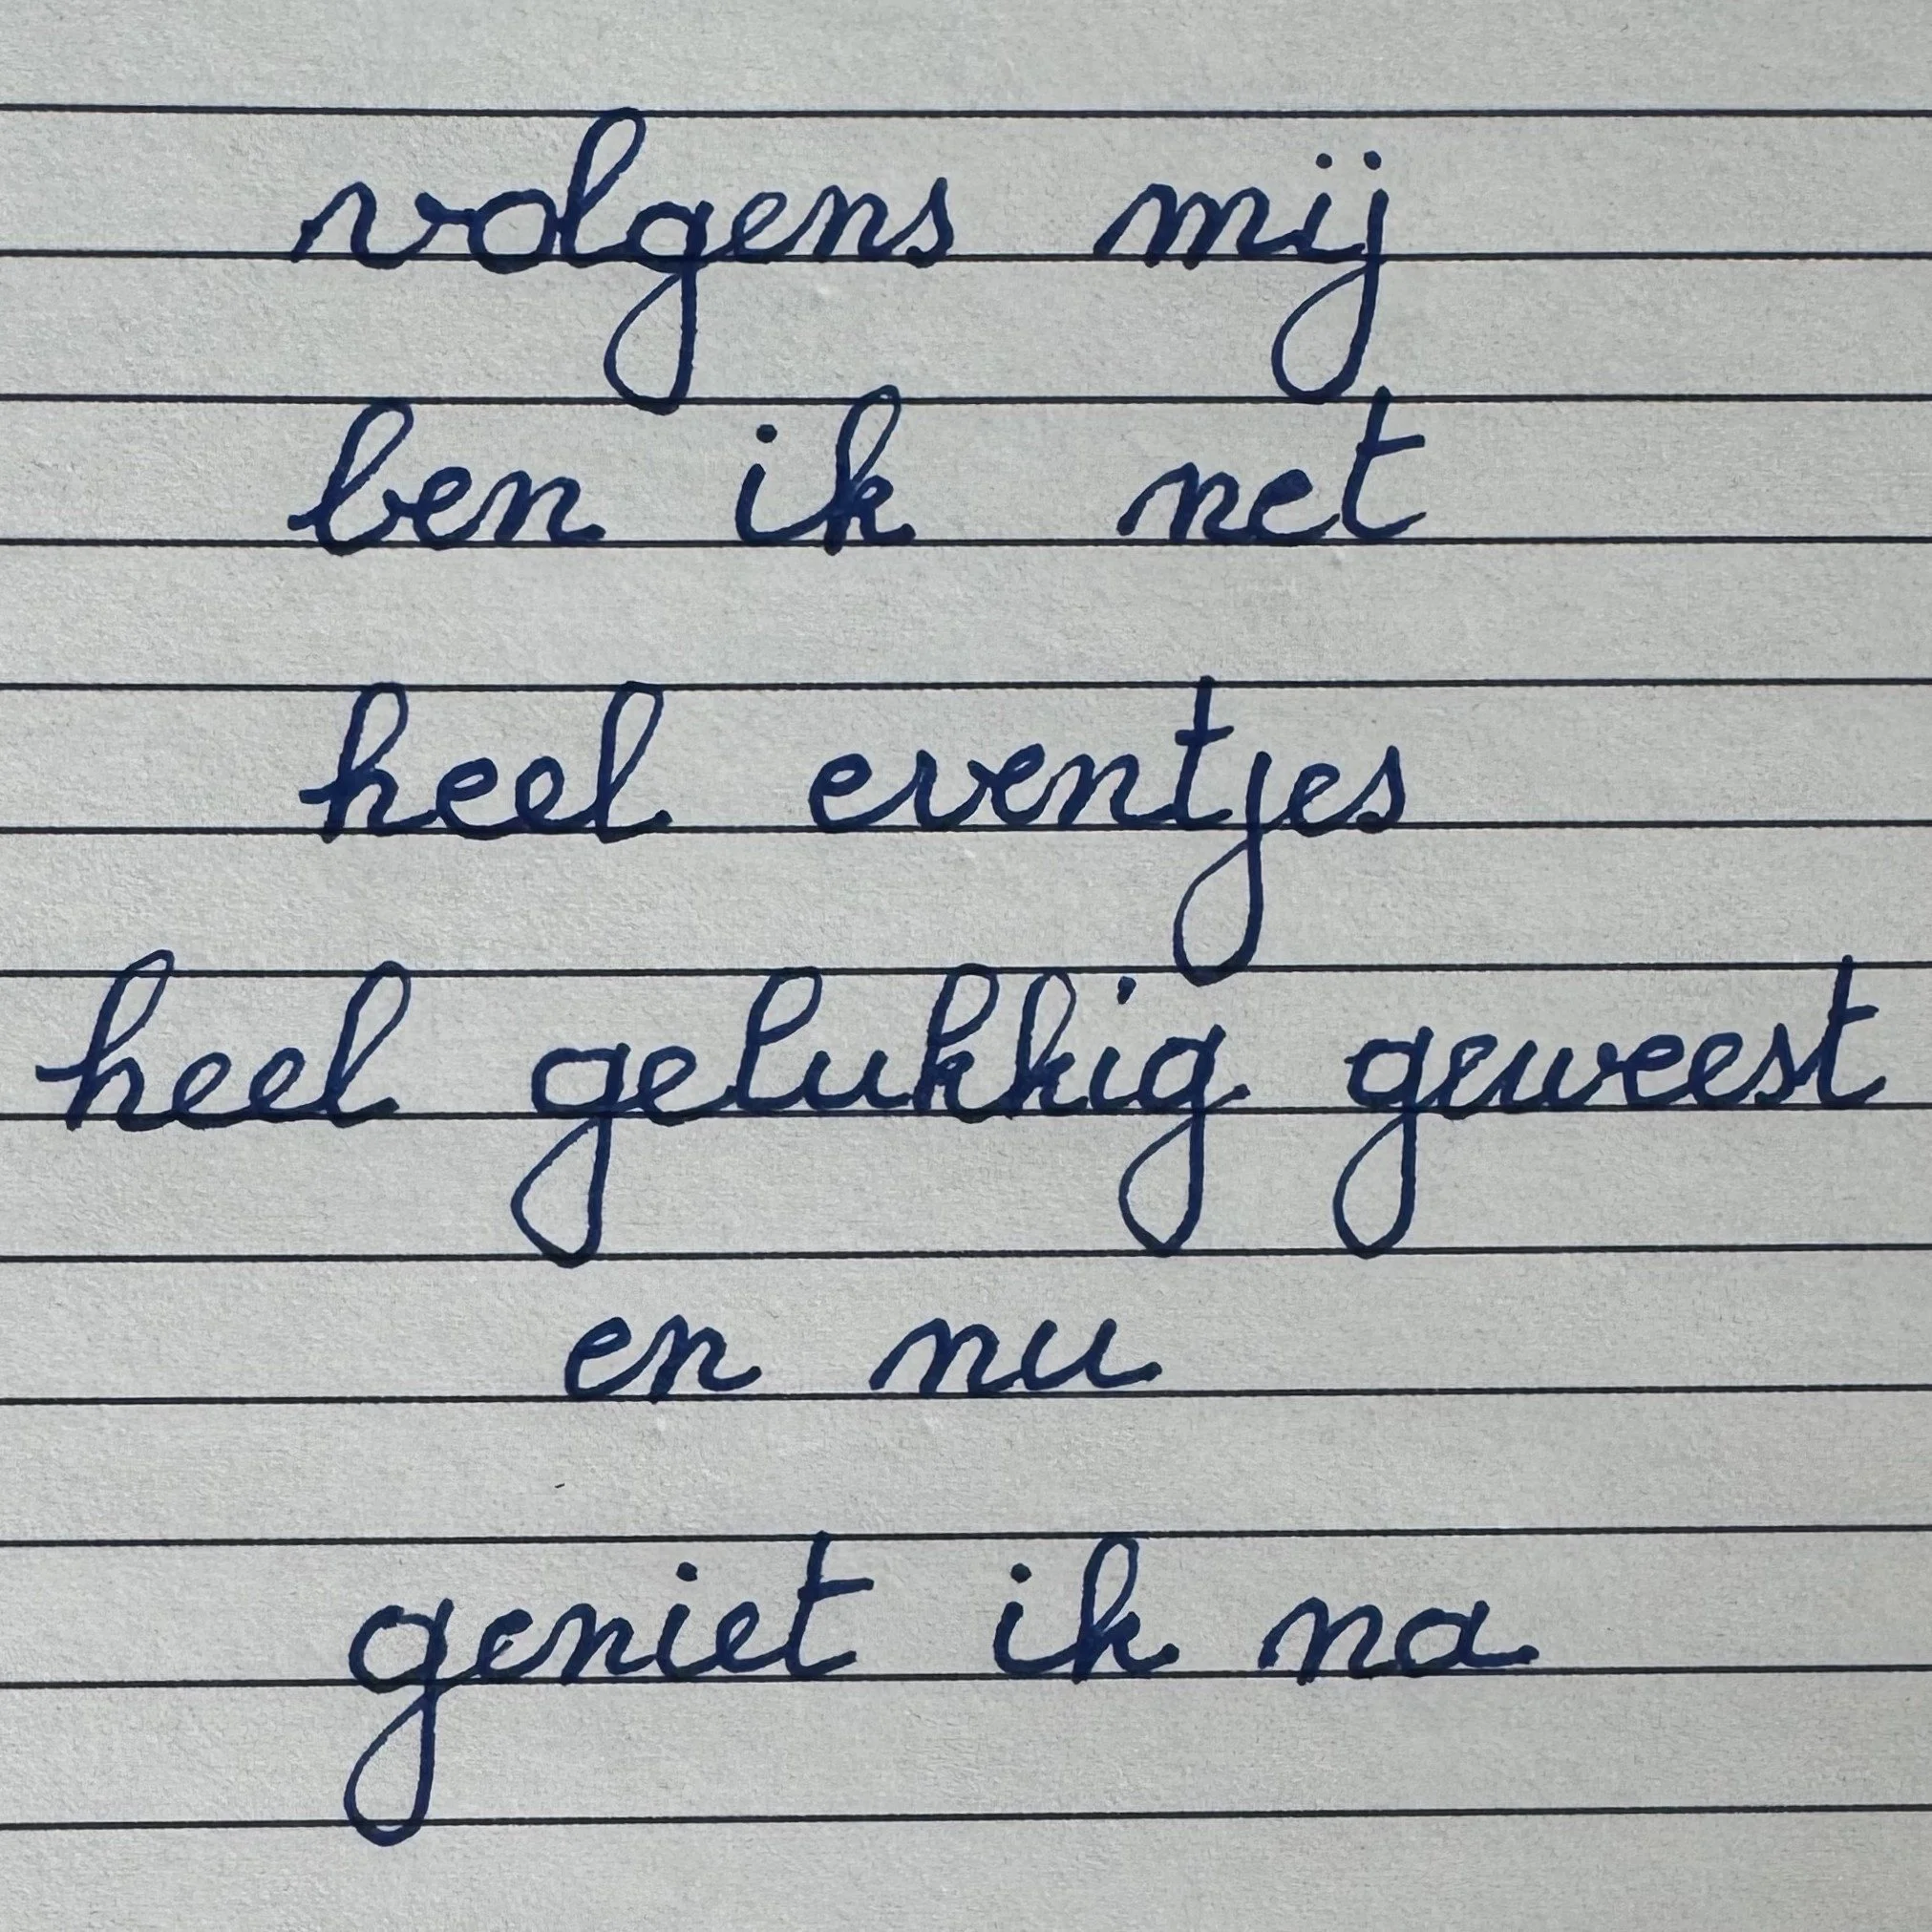 volgens mij
ben ik net
heel eventjes
heel gelukkig geweest
en nu
geniet ik na